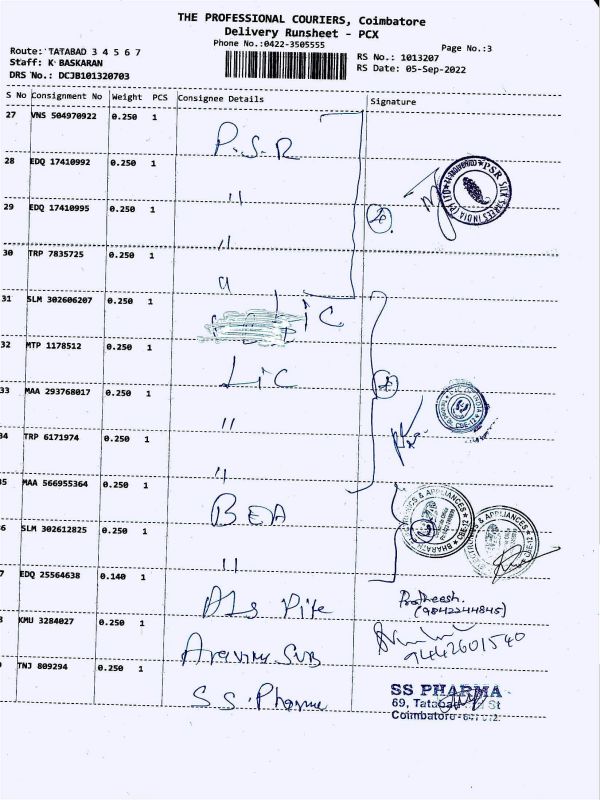 THE PROFESSIONAL COURIERS, Coimbatore
Delivery Runsheet - PCX
Phone No.:0422-3505555
Page No.:3
Route: TATABAD 3 4 5 6 7
Staff: K BASKARAN
DRS No.: DCJB101320703
RS No.: 1013207
RS Date: 05-Sep-2022
S No Consignment No Weight PCS Consignee Details Signature
27 VNS 504970922 0.250 1 P.S.R
28 EDQ 17410992 0.250 1 "
PSR SILK SAREES INDIA (P) LTD
29 EDQ 17410995 0.250 1 "
30 TRP 7835725 0.250 1 "
31 SLM 302606207 0.250 1 LIC
32 MTP 1178512 0.250 1 LIC
33 MAA 293768017 0.250 1 "
34 TRP 6171974 0.250 1 "
35 MAA 566955364 0.250 1 BEA
36 SLM 302612825 0.250 1 "
7 EDQ 25564638 0.140 1
(9842244845)
8 KMU 3284027 0.250 1
9442601540
TNJ 809294 0.250 1 SS. Pharma
SS PHARMA
69, Tatabad St
Coimbatore